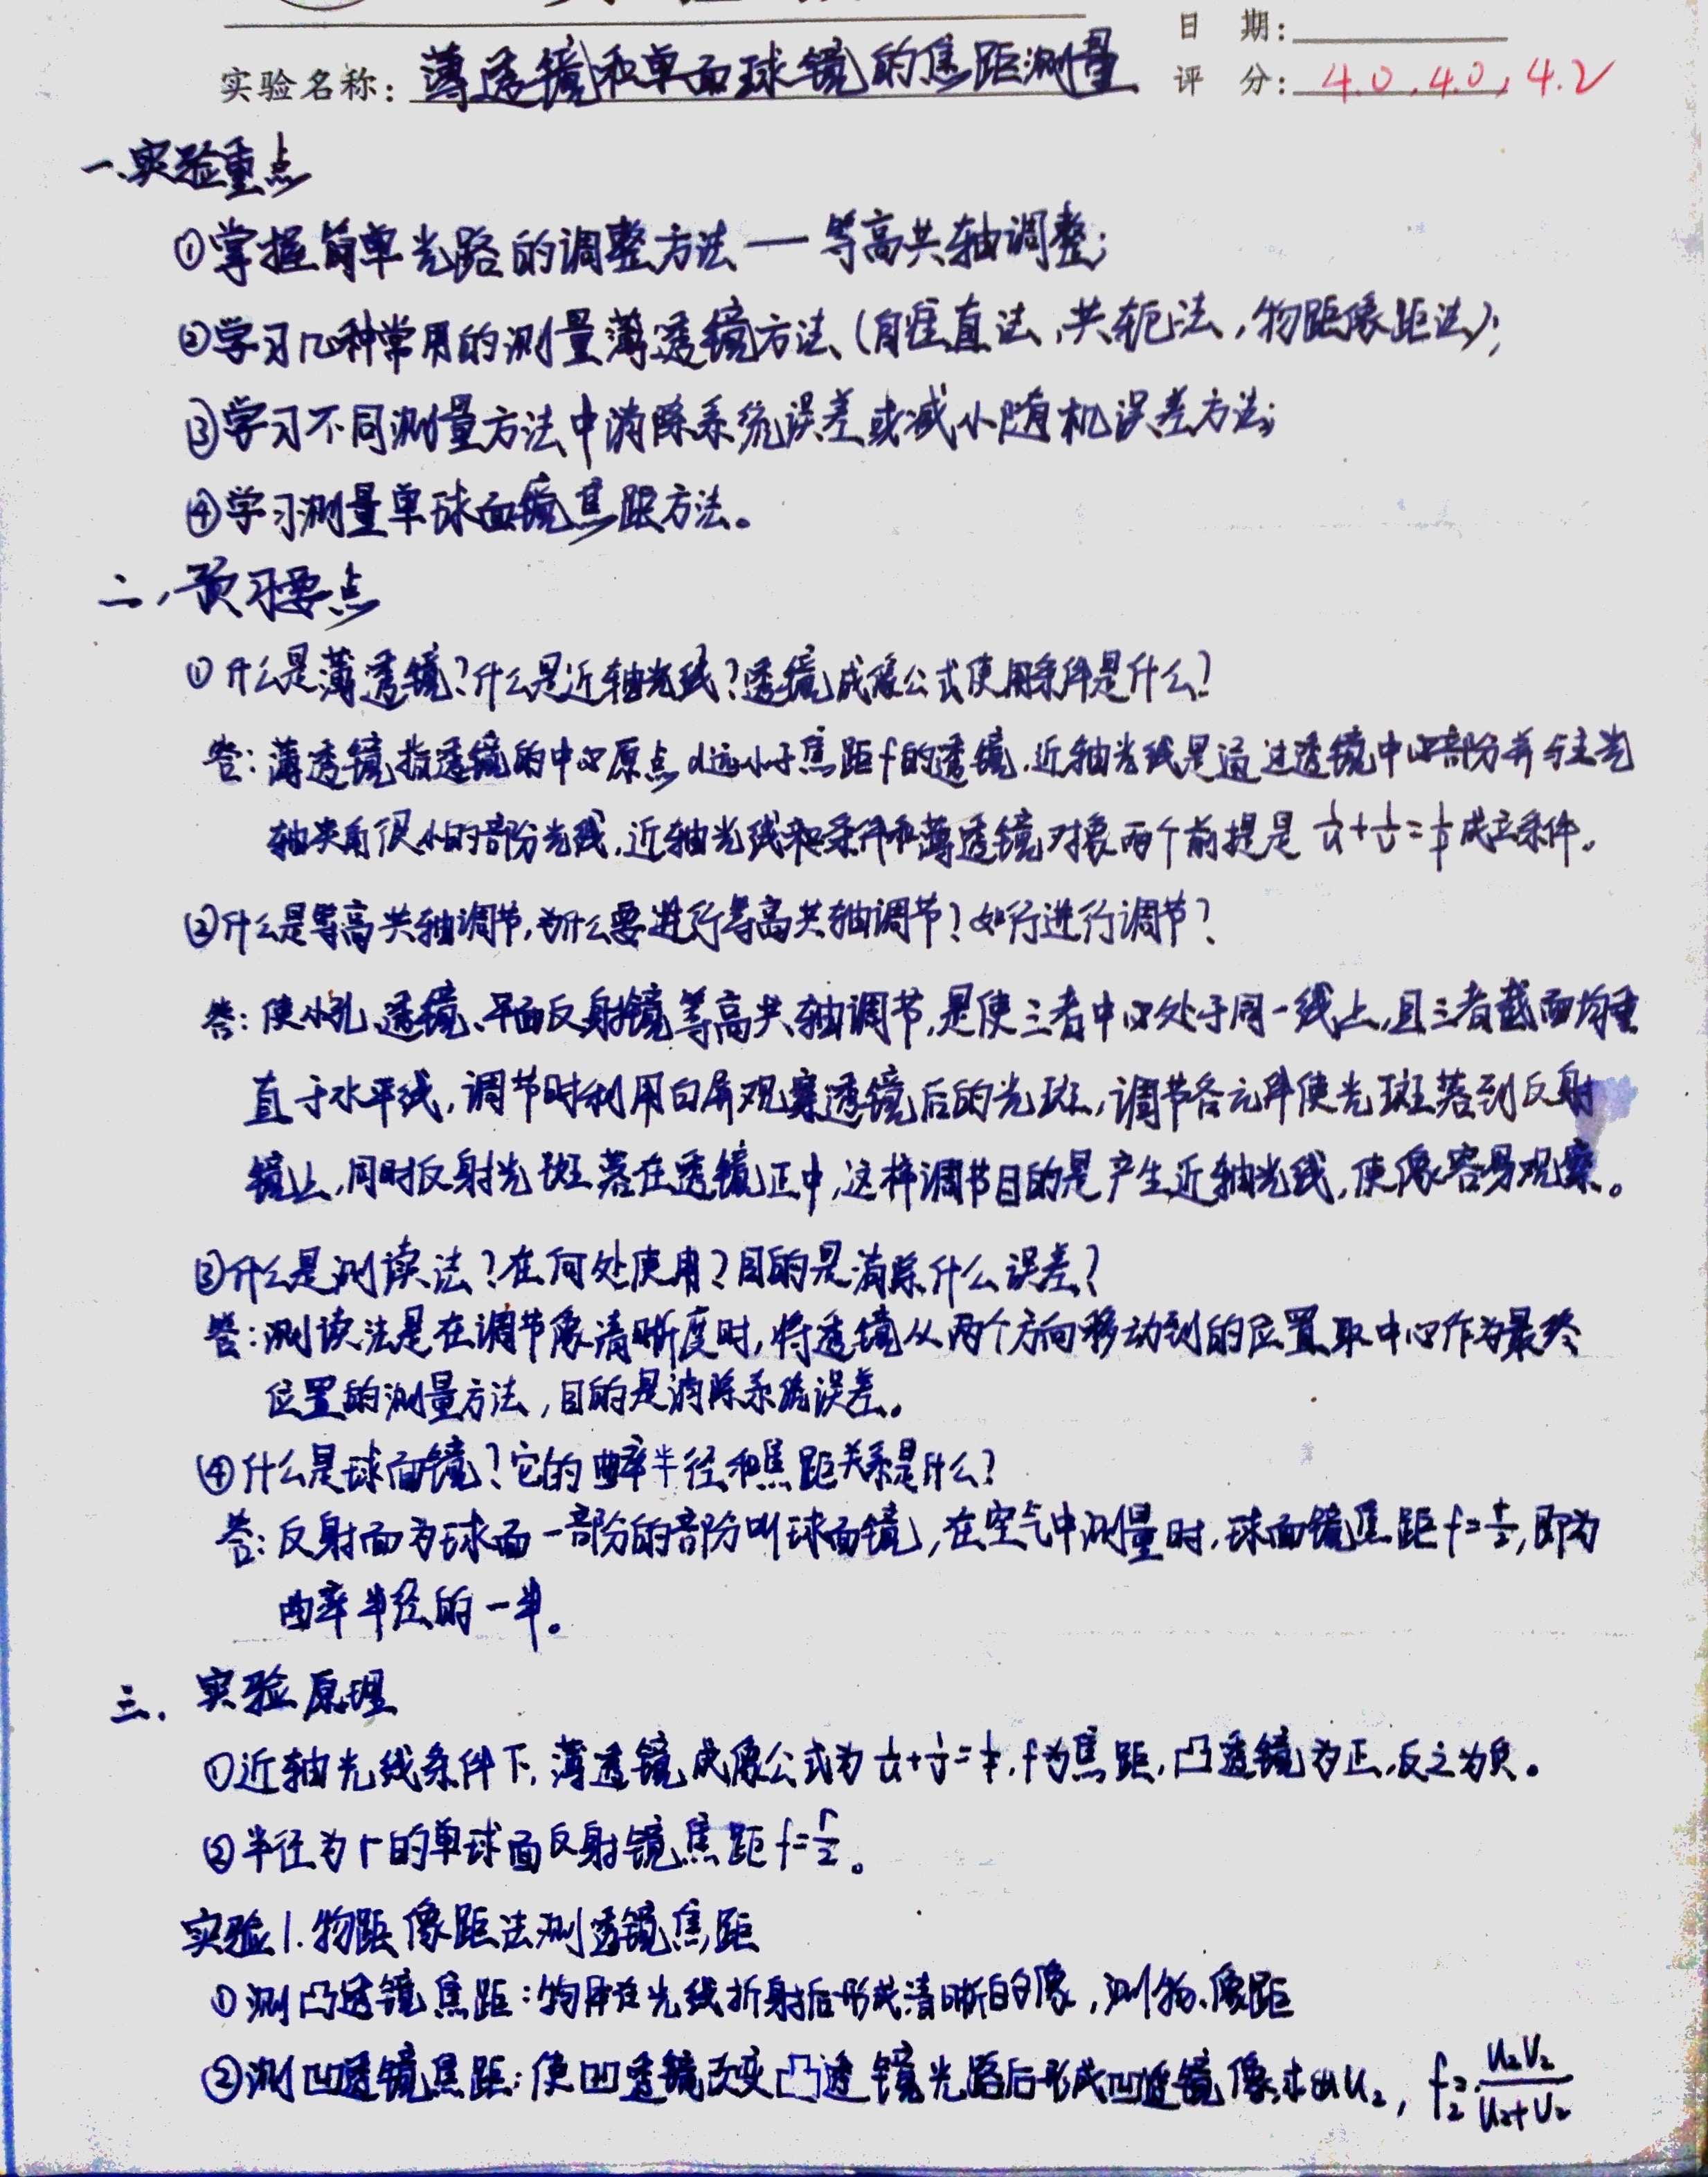 日 期:
实验名称: 薄透镜和单面球镜的焦距测量
评 分: 4.0, 4.0, 4.2
一、实验重点
①掌握简单光路的调整方法——等高共轴调整;
②学习几种常用的测量薄透镜方法(自准直法,共轭法,物距像距法);
③学习不同测量方法中消除系统误差或减小随机误差方法;
④学习测量单球面镜焦距方法。
二、预习要点
①什么是薄透镜?什么是近轴光线?透镜成像公式使用条件是什么?
答:薄透镜指透镜的中心原点d远小于焦距f的透镜.近轴光线是通过透镜中心部分并与主光
轴夹角很小的部分光线.近轴光线和条件和薄透镜对象两个前提是 1/u+1/v=1/f 成立条件。
②什么是等高共轴调节,为什么要进行等高共轴调节?如行进行调节?
答:使小孔、透镜、平面反射镜等高共轴调节,是使三者中心处于同一线上,且三者截面均垂
直于水平线,调节时利用白屏观察透镜后的光斑,调节各元件使光斑落到反射
镜上,同时反射光斑落在透镜正中,这样调节目的是产生近轴光线,使像容易观察。
③什么是测读法?在何处使用?目的是消除什么误差?
答:测读法是在调节像清晰度时,将透镜从两个方向移动到的位置取中心作为最终
位置的测量方法,目的是消除系统误差。
④什么是球面镜?它的曲率半径和焦距关系是什么?
答:反射面为球面一部分的部分叫球面镜,在空气中测量时,球面镜焦距f=r/2,即为
曲率半径的一半。
三、实验原理
①近轴光线条件下,薄透镜成像公式为 1/u+1/v=1/f,f为焦距,凸透镜为正,反之为负。
②半径为r的单球面反射镜焦距f=r/2。
实验1.物距像距法测透镜焦距
①测凸透镜焦距:物体在光线折射后形成清晰的像,测物、像距
②测凹透镜焦距:使凹透镜改变凸透镜光路后形成凹透镜像,求出u₂, f₂=u₂v₂/(u₂+v₂)